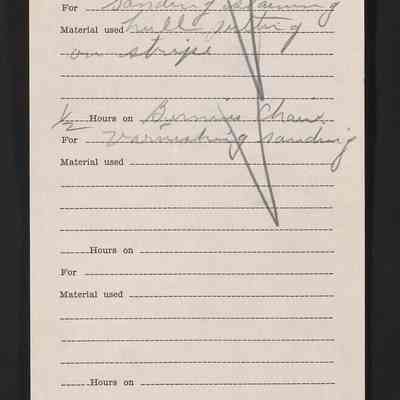 For Sanding staining
Material used hull, putting
on stripe
1/2 Hours on Chair
For Varnishing sanding
Material used
Hours on
For
Material used
Hours on